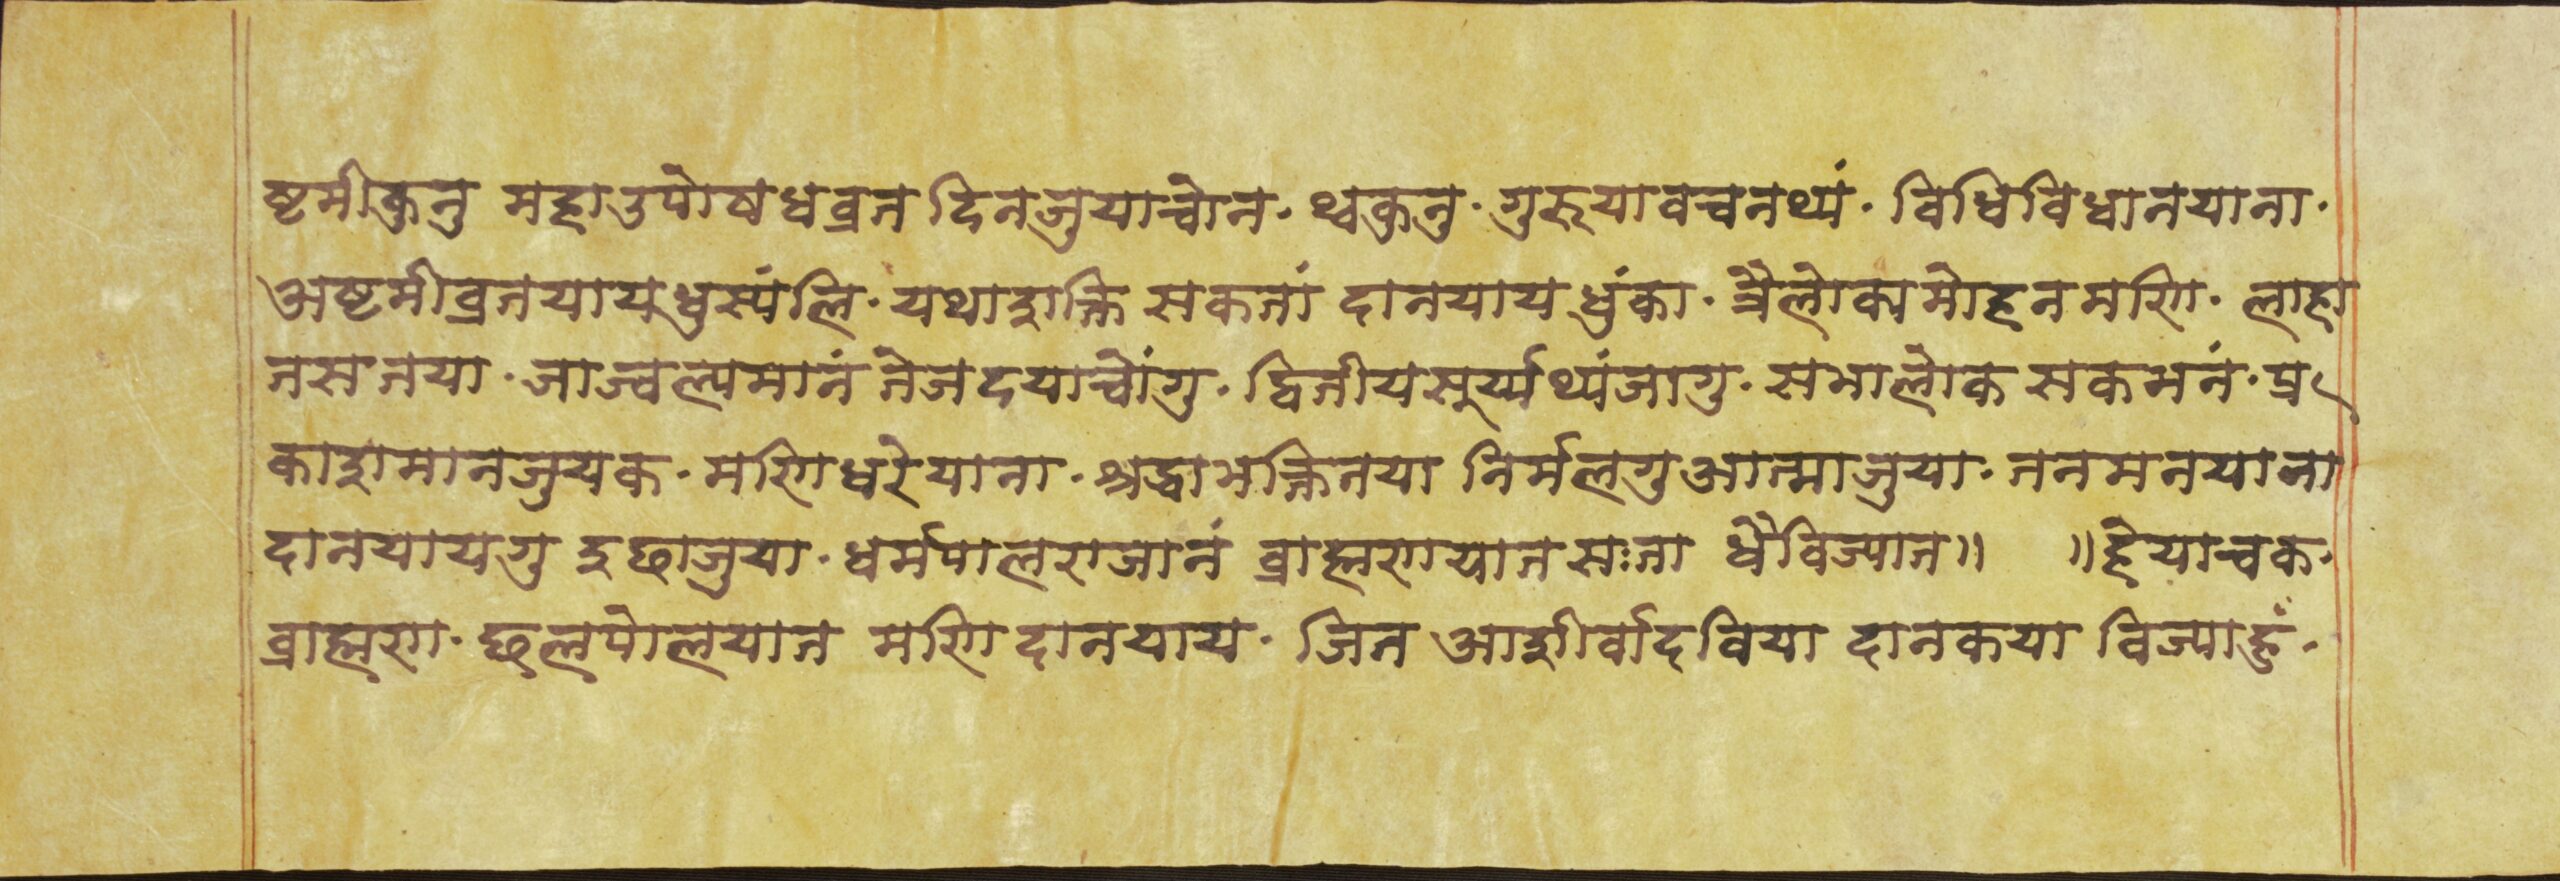 ष्टमीकुनु महाउपोषधव्रत दिनजुयाच्वोन· थ्वकुनु· गुरूयावचनथ्यं· विधिविधानयाना·
अष्टमीव्रतयायधुस्यंलि· यथाशक्ति सकतां दानयायधुंका· त्रैलोक्यमोहनमणि· लाहा
तसतया· जाज्वल्यमानं तेजदयाच्वोंगु· द्वितीयसूर्य्यथ्यंजागु· सभालोक सकभनं· प्र
काशमानजुयक· मणिधरेयाना· श्रद्धाभक्तितया निर्मलगुआत्माजुया· तनमनयाना
दानयायगु इछाजुया· धर्मपालराजानं ब्राह्मणयातसःता धैविज्यात॥ ॥हेयाचक·
ब्राह्मण· छलपोलयात मणि दानयाय· जित आशीर्वादविया दानकया विज्याहुँ·